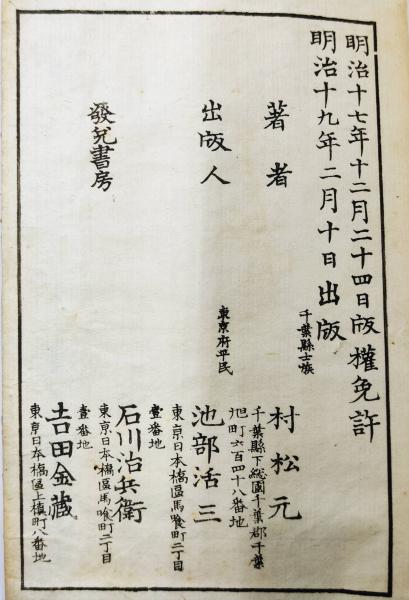 明治十七年十二月二十四日版權免許
明治十九年二月十日出版
千葉縣士族
著者
村松元
千葉縣下総國千葉郡千葉
旭町六百四十八番地
東京府平民
出版人
池部活三
東京日本橋區馬喰町二丁目
壹番地
發兌書房
石川治兵衛
東京日本橋區馬喰町二丁目
壹番地
吉田金藏
東京日本橋區上槇町八番地